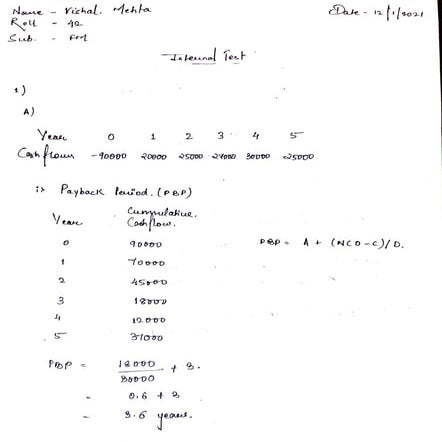 Name - Vishal. Mehta
Date - 12/1/2021
Roll - 42
Sub. - FM
Internal Test
1)
A)
Year 0 1 2 3 4 5
Cashflows -90000 20000 25000 27000 30000 25000
i> Payback Period. (PBP)
Year Cummulative. Cashflow.
0 90000
PBP = A + (NCO-C)/D.
1 70000
2 45000
3 18000
4 12000
5 37000
PBP = 18000 / 30000 + 3.
= 0.6 + 3
= 3.6 years.